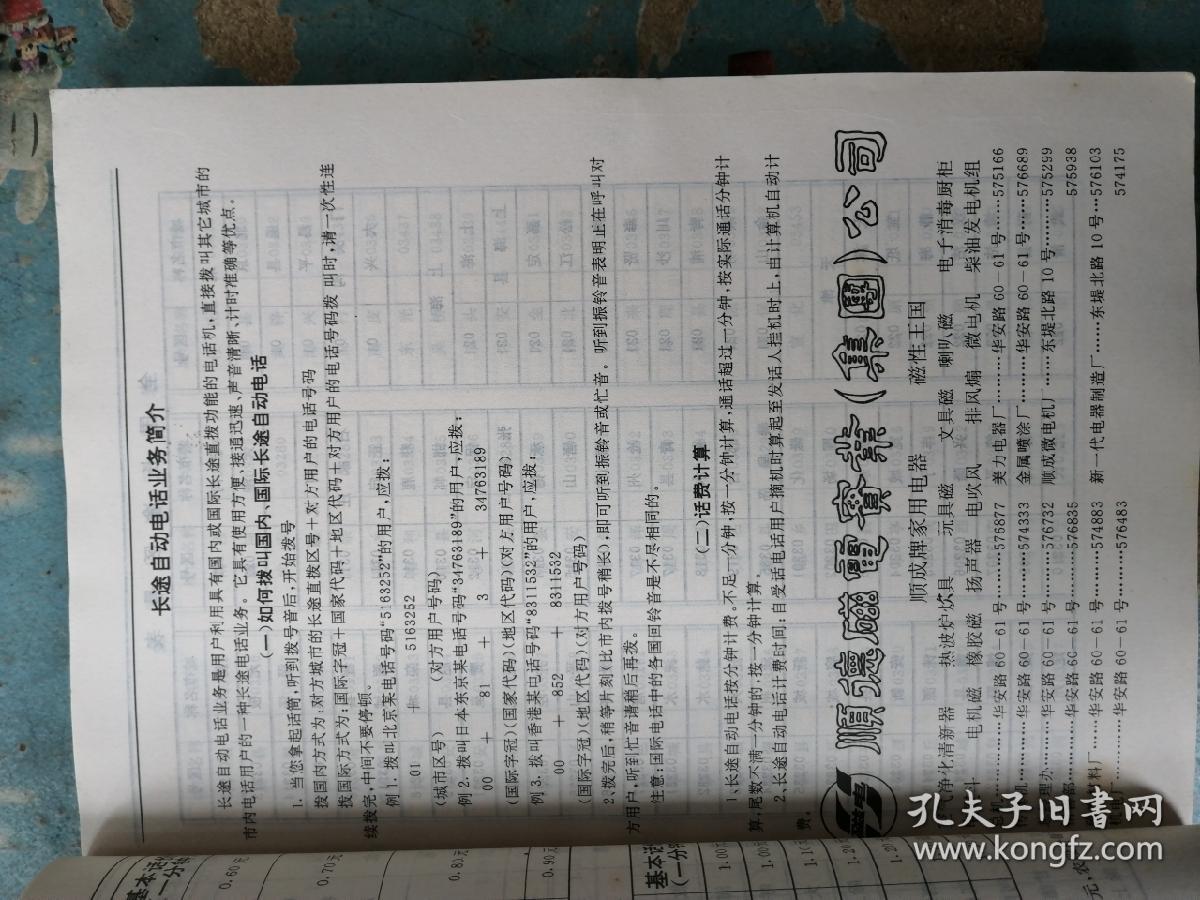 长途自动电话业务简介
长途自动电话业务是用户利用具有国内或国际长途直拨功能的电话机,直接拨叫其它城市的
市内电话用户的一种长途电话业务。它具有使用方便、接通迅速、声音清晰、计时准确等优点。
(一)如何拨叫国内、国际长途自动电话
1. 当您拿起话筒,听到拨号音后,开始拨号
拨国内方式为:对方城市的长途直拨区号+对方用户的电话号码
拨国际方式为:国际字冠+国家代码+地区代码+对方用户的电话号码拨叫时,请一次性连
续拨完,中间不要停顿。
例1. 拨叫北京某电话号码“5163252”的用户,应拨:
01 5163252
(城市区号) (对方用户号码)
例2. 拨叫日本东京某电话号码“34763189”的用户,应拨:
00 + 81 + 3 + 34763189
(国际字冠)(国家代码)(地区代码)(对方用户号码)
例3. 拨叫香港某电话号码“8311532”的用户,应拨:
00 + 852 + 8311532
(国际字冠)(地区代码)(对方用户号码)
2、拨完后,稍等片刻(比市内拨号稍长),即可听到振铃音或忙音。听到振铃音表明正在呼叫对
方用户,听到忙音请稍后再发。
注意:国际电话中的各国回铃音是不尽相同的。
(二)话费计算
1、长途自动电话按分钟计费。不足一分钟,按一分钟计算,通话超过一分钟,按实际通话分钟计
算,尾数不满一分钟的,按一分钟计算。
2、长途自动电话计费时间:自受话电话用户摘机时算起至发话人挂机时上,由计算机自动计
费。
順德磁電實業(集團)公司
顺成牌家用电器 磁性王国
气净化清新器 热波炉炊具 玩具磁 文具磁 喇叭磁 电子消毒厨柜
斗 电机磁 橡胶磁 扬声器 电吹风 排风煽 微电机 柴油发电机组
机………华安路60-61号……575877 美力电器厂………华安路60-61号……575166
机………华安路60-61号……574333 金属喷涂厂………华安路60-61号……576689
理办……华安路60-61号……576732 顺成微电机厂……东堤北路10号………575299
部………华安路60-61号……576835 575938
料厂……华安路60-61号……574883 新一代电器制造厂……东堤北路10号…576103
厂………华安路60-61号………576483 574175
基本话
一分钟
0.60元
0.70元
0.80元
0.90元
基本
(一分
1.00元
1.00元
孔夫子旧书网
www.kongfz.com